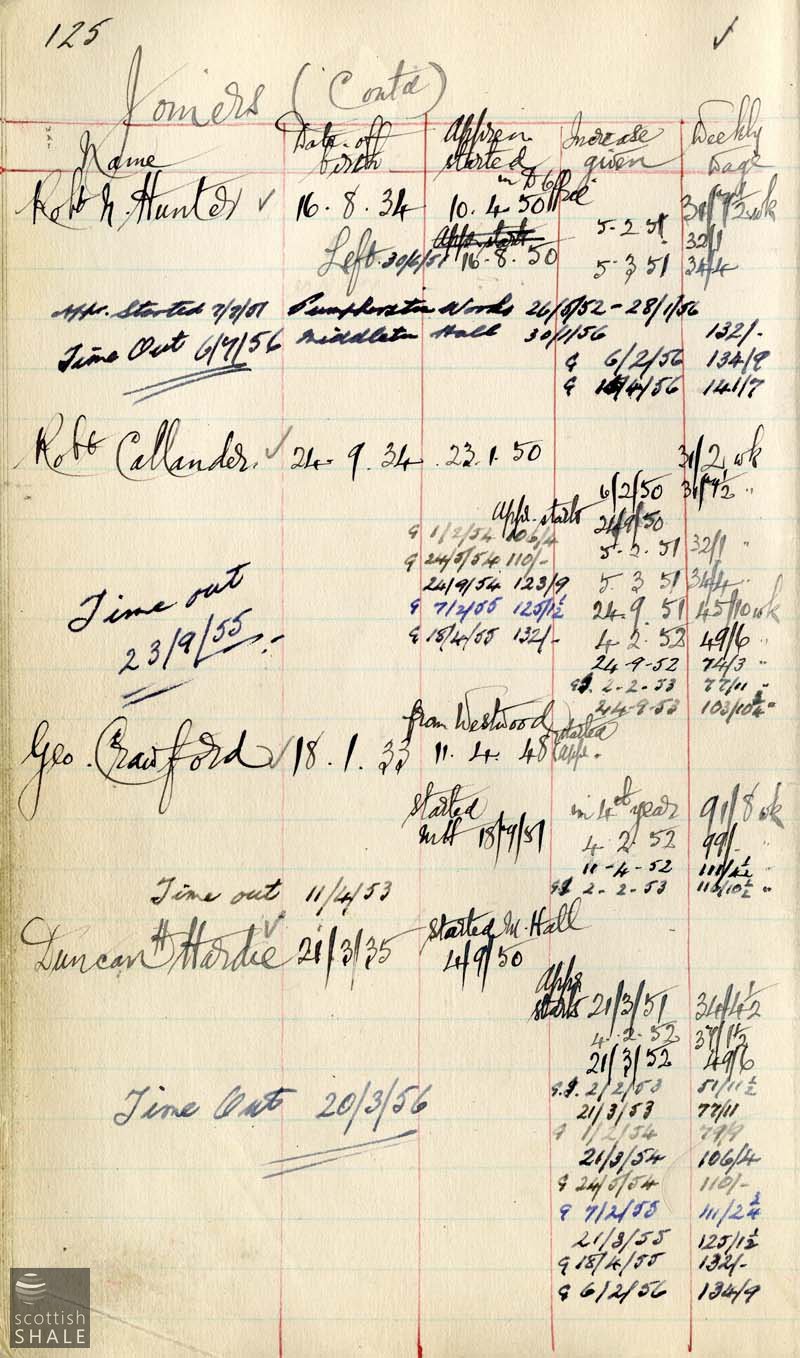 125 ✓
Joiners (Contd)
Name Date of birth Appren started Increase given Weekly wage
in D Office
Robt N. Hunter ✓ 16 . 8 . 34 10 . 4 . 50 31/7½ wk
Appr. starts 5 - 2 51 32/1
Left 30/6/51 16 - 8 . 50 5 . 3 51 34/4
Appr. Started 7/7/51 Pumpherston Works 26/5/52 - 28/1/56
Time Out 6/7/56 Middleton Hall 30/1/56 132/-
G 6/2/56 134/9
G /4/56 141/7
Robt Callander. ✓ 24 . 9 . 34 . 23 . 1 . 50 31/2 wk
6/2/50 31/7½ "
Appr. starts 24/9/50
G 1/2/54 106/4 5 - 2 . 51 32/1 "
G 24/5/54 110/-
24/9/54 123/9 5 . 3 51 34/4 "
Time out G 7/2/55 125/1½ 24 . 9 . 51 45/10 wk
23/9/55 G 18/4/55 132/- 4 . 2 . 52 49/6 "
24-9-52 74/3 "
2-2-53 77/11 "
24-9-53 103/10¾ "
from Westwood started
Geo. Crawford ✓ 18 . 1 . 33 11 . 4 . 48 appr.
Started in 4th year 91/8 wk
MH 18/9/51 4 . 2 . 52 99/- "
11-4-52 111/4½ "
Time out 11/4/53 2-2-53 116/10½ "
Duncan H Hardie ✓ 21/3/35 Started M. Hall
4/9/50
Appr.
starts 21/3/51 34/4½
4 . 2 . 52 37/1½
21/3/52 49/6
Time Out 20/3/56 2/2/53 51/11½
21/3/53 77/11
G 1/2/54 79/9
21/3/54 106/4
G 24/5/54 110/-
G 7/2/55 111/2¾
21/3/55 125/1½
G 18/4/55 132/-
G 6/2/56 134/9
scottish
SHALE